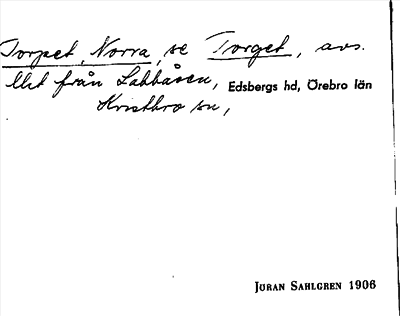 Torpet, Norra, se Torget, avs.
llet från Labbåsen, Edsbergs hd, Örebro län
Kristbro sn,
JÖRAN SAHLGREN 1906